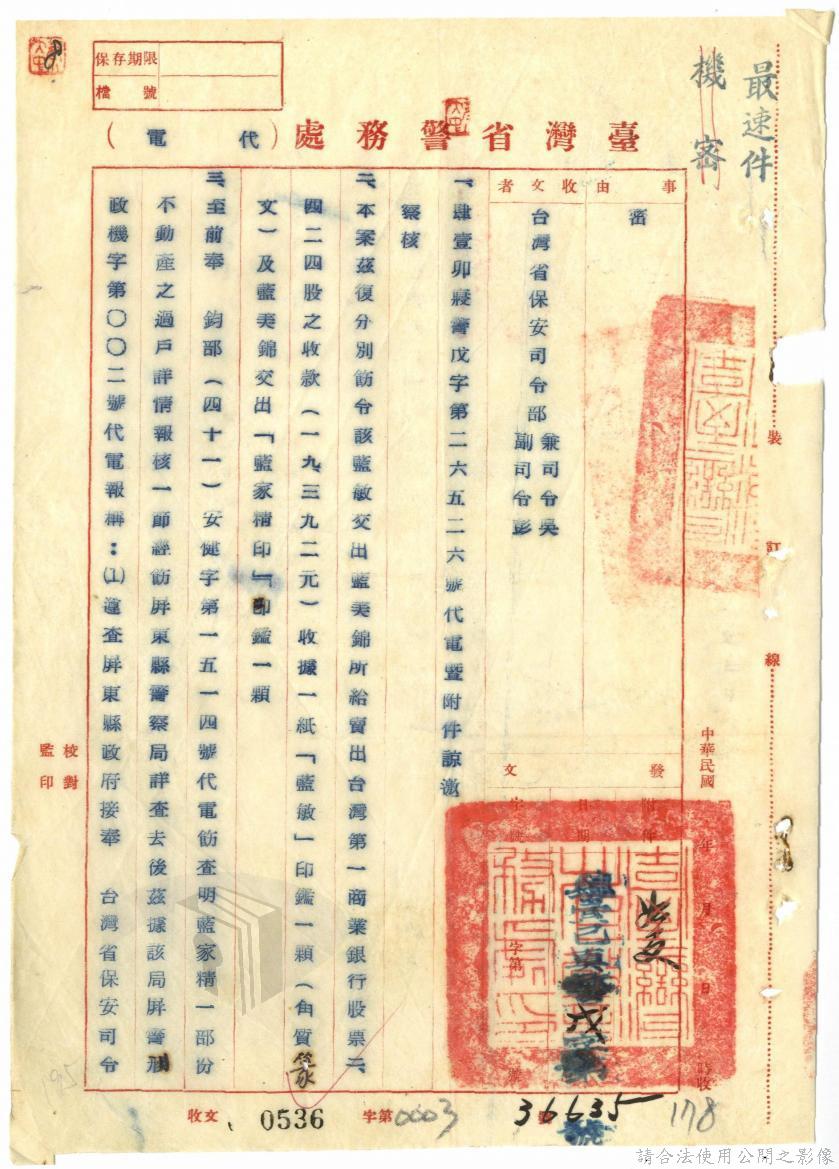 最速件
機密
保存期限
檔號
臺灣省警務處（代電）
事由
密
收文者
台灣省保安司令部 兼司令吳
副司令彭
發文
附件
如文
日期
字號
字第
號
中華民國 年 月 日 時收
一、肆壹卯寢警戊字第二六五二六號代電暨附件諒邀
察核
二、本案茲復分別飭令該藍敏交出藍美錦所給賣出台灣第一商業銀行股票二、
四二四股之收款（一九、三九二元）收據一紙「藍敏」印鑑一顆（角質篆
文）及藍美錦交出「藍家精印」印鑑一顆
三、至前奉　鈞部（四十一）安健字第一五一四號代電飭查明藍家精一部份
不動產之過戶詳情報核一節經飭屏東縣警察局詳查去後茲據該局屏警刑
政機字第〇〇二號代電報稱：(1)遵查屏東縣政府接奉　台灣省保安司令
裝
訂
線
校對
監印
收文 0536 字第0003 36635 號 178
195
請合法使用公開之影像